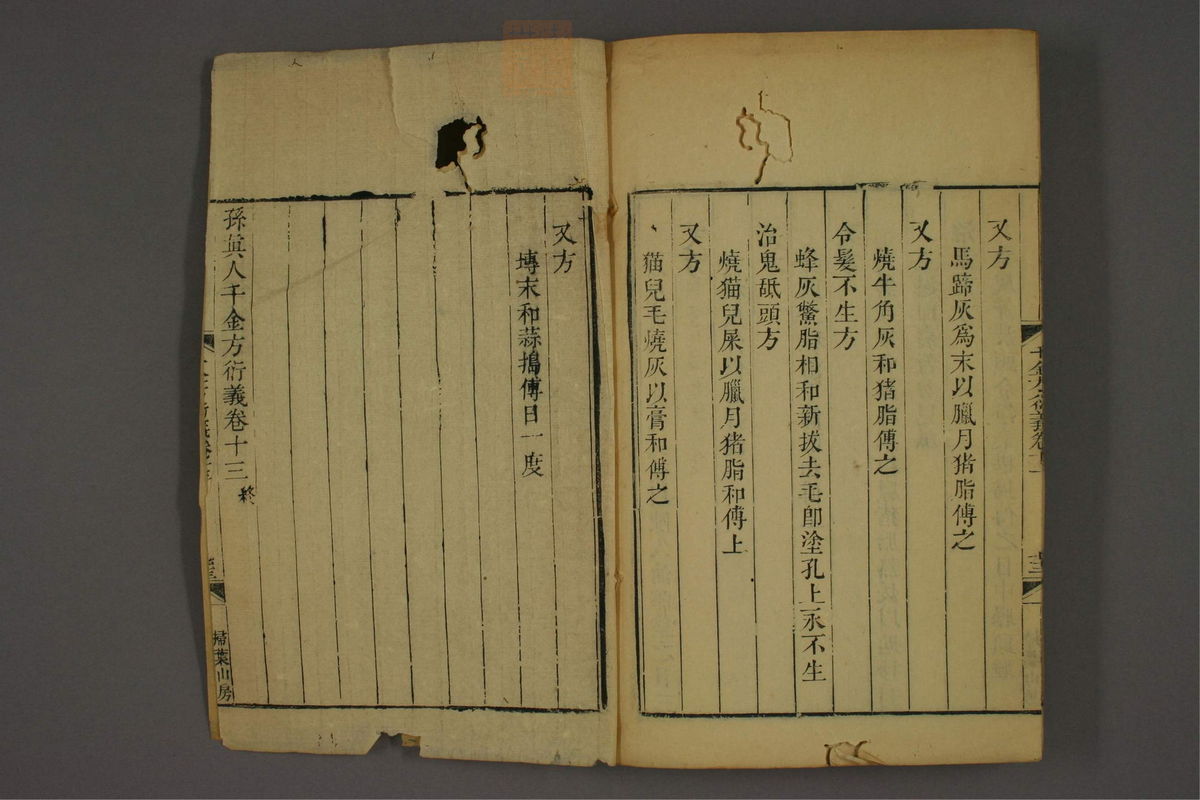 又方
馬蹄灰為末以臘月猪脂傅之
又方
燒牛角灰和猪脂傅之
令髮不生方
蜂灰鱉脂相和新拔去毛卽塗孔上永不生
治鬼舐頭方
燒猫兒屎以臘月猪脂和傅上
又方
猫兒毛燒灰以膏和傅之
又方
塼末和蒜搗傅日一度
孫真人千金方衍義卷十三終
掃葉山房